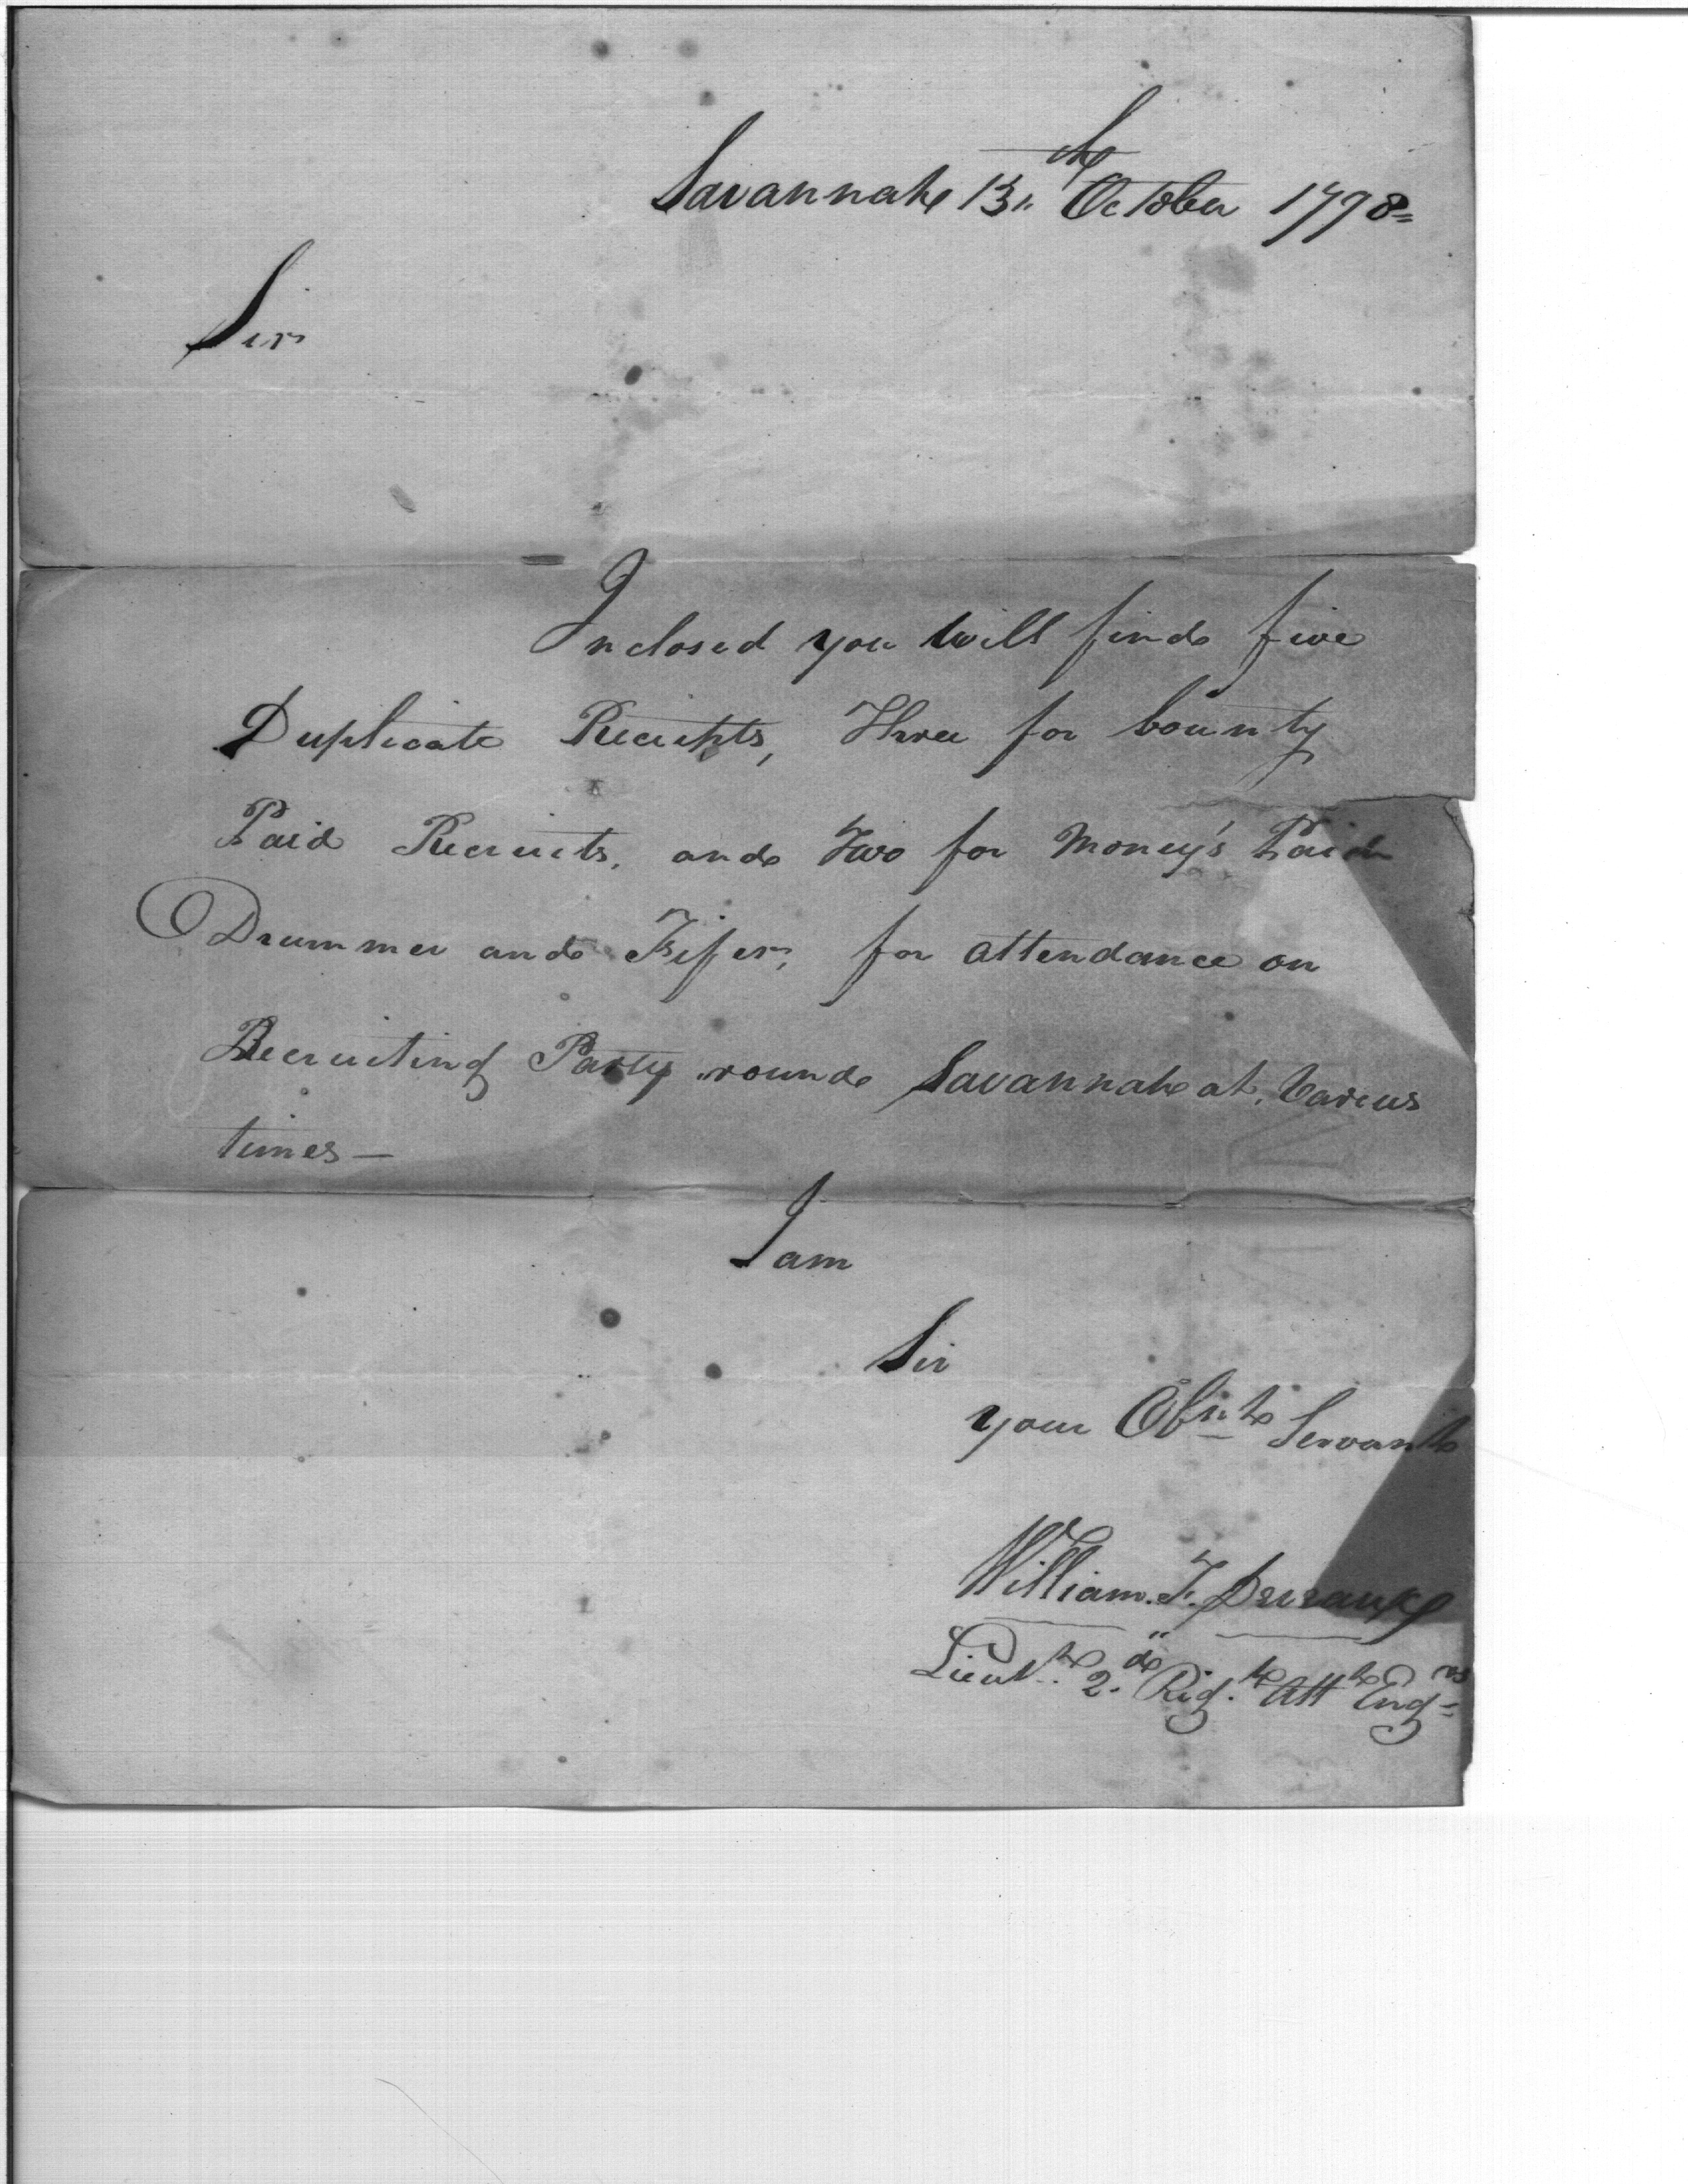 Savannah 13th October 1798
Sir
Inclosed you will find five
Duplicate Receipts, Three for bounty
Paid Recruits, and Two for Money's Paid
Drummer and Fifer, for attendance on
Recruiting Party round Savannah at Varius
times—
I am
Sir
your Obnt Servant
William. T.
Lieutt. 2d Rigt Att Engrs